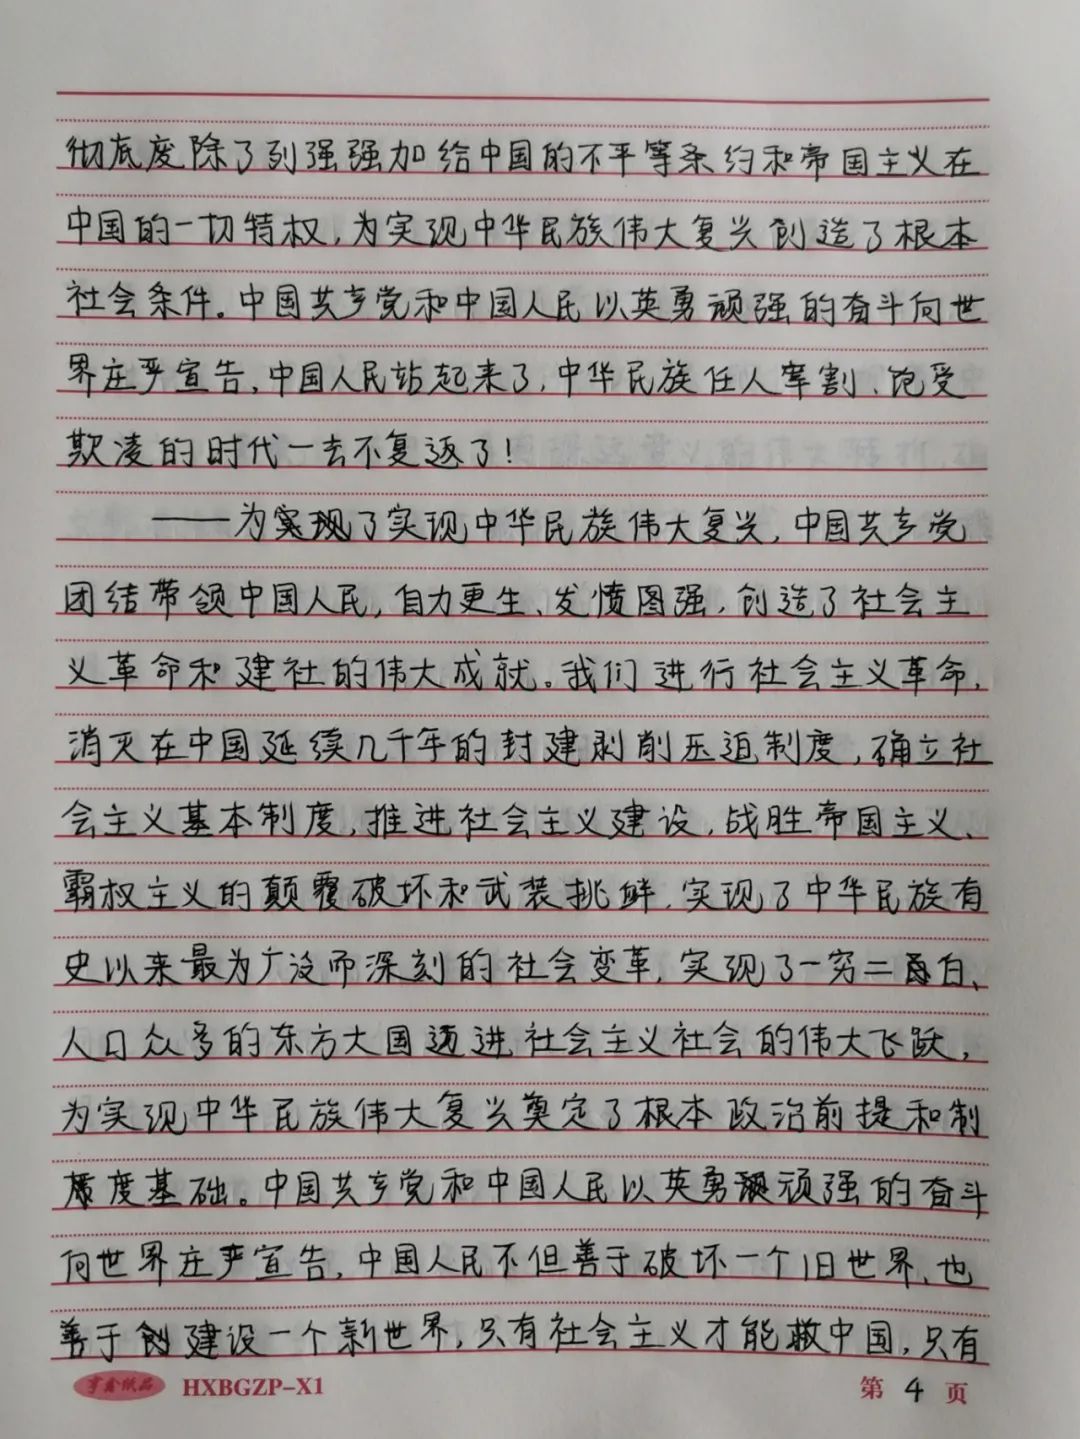 彻底废除了列强强加给中国的不平等条约和帝国主义在
中国的一切特权,为实现中华民族伟大复兴创造了根本
社会条件。中国共产党和中国人民以英勇顽强的奋斗向世
界庄严宣告,中国人民站起来了,中华民族任人宰割、饱受
欺凌的时代一去不复返了!
——为实现了实现中华民族伟大复兴,中国共产党
团结带领中国人民,自力更生、发愤图强,创造了社会主
义革命和建社的伟大成就。我们进行社会主义革命,
消灭在中国延续几千年的封建剥削压迫制度,确立社
会主义基本制度,推进社会主义建设,战胜帝国主义、
霸权主义的颠覆破坏和武装挑衅,实现了中华民族有
史以来最为广泛而深刻的社会变革,实现了一穷二白、
人口众多的东方大国迈进社会主义社会的伟大飞跃,
为实现中华民族伟大复兴奠定了根本政治前提和制
度基础。中国共产党和中国人民以英勇顽强的奋斗
向世界庄严宣告,中国人民不但善于破坏一个旧世界、也
善于建设一个新世界,只有社会主义才能救中国,只有
亨鑫纸品 HXBGZP-X1 第 4 页